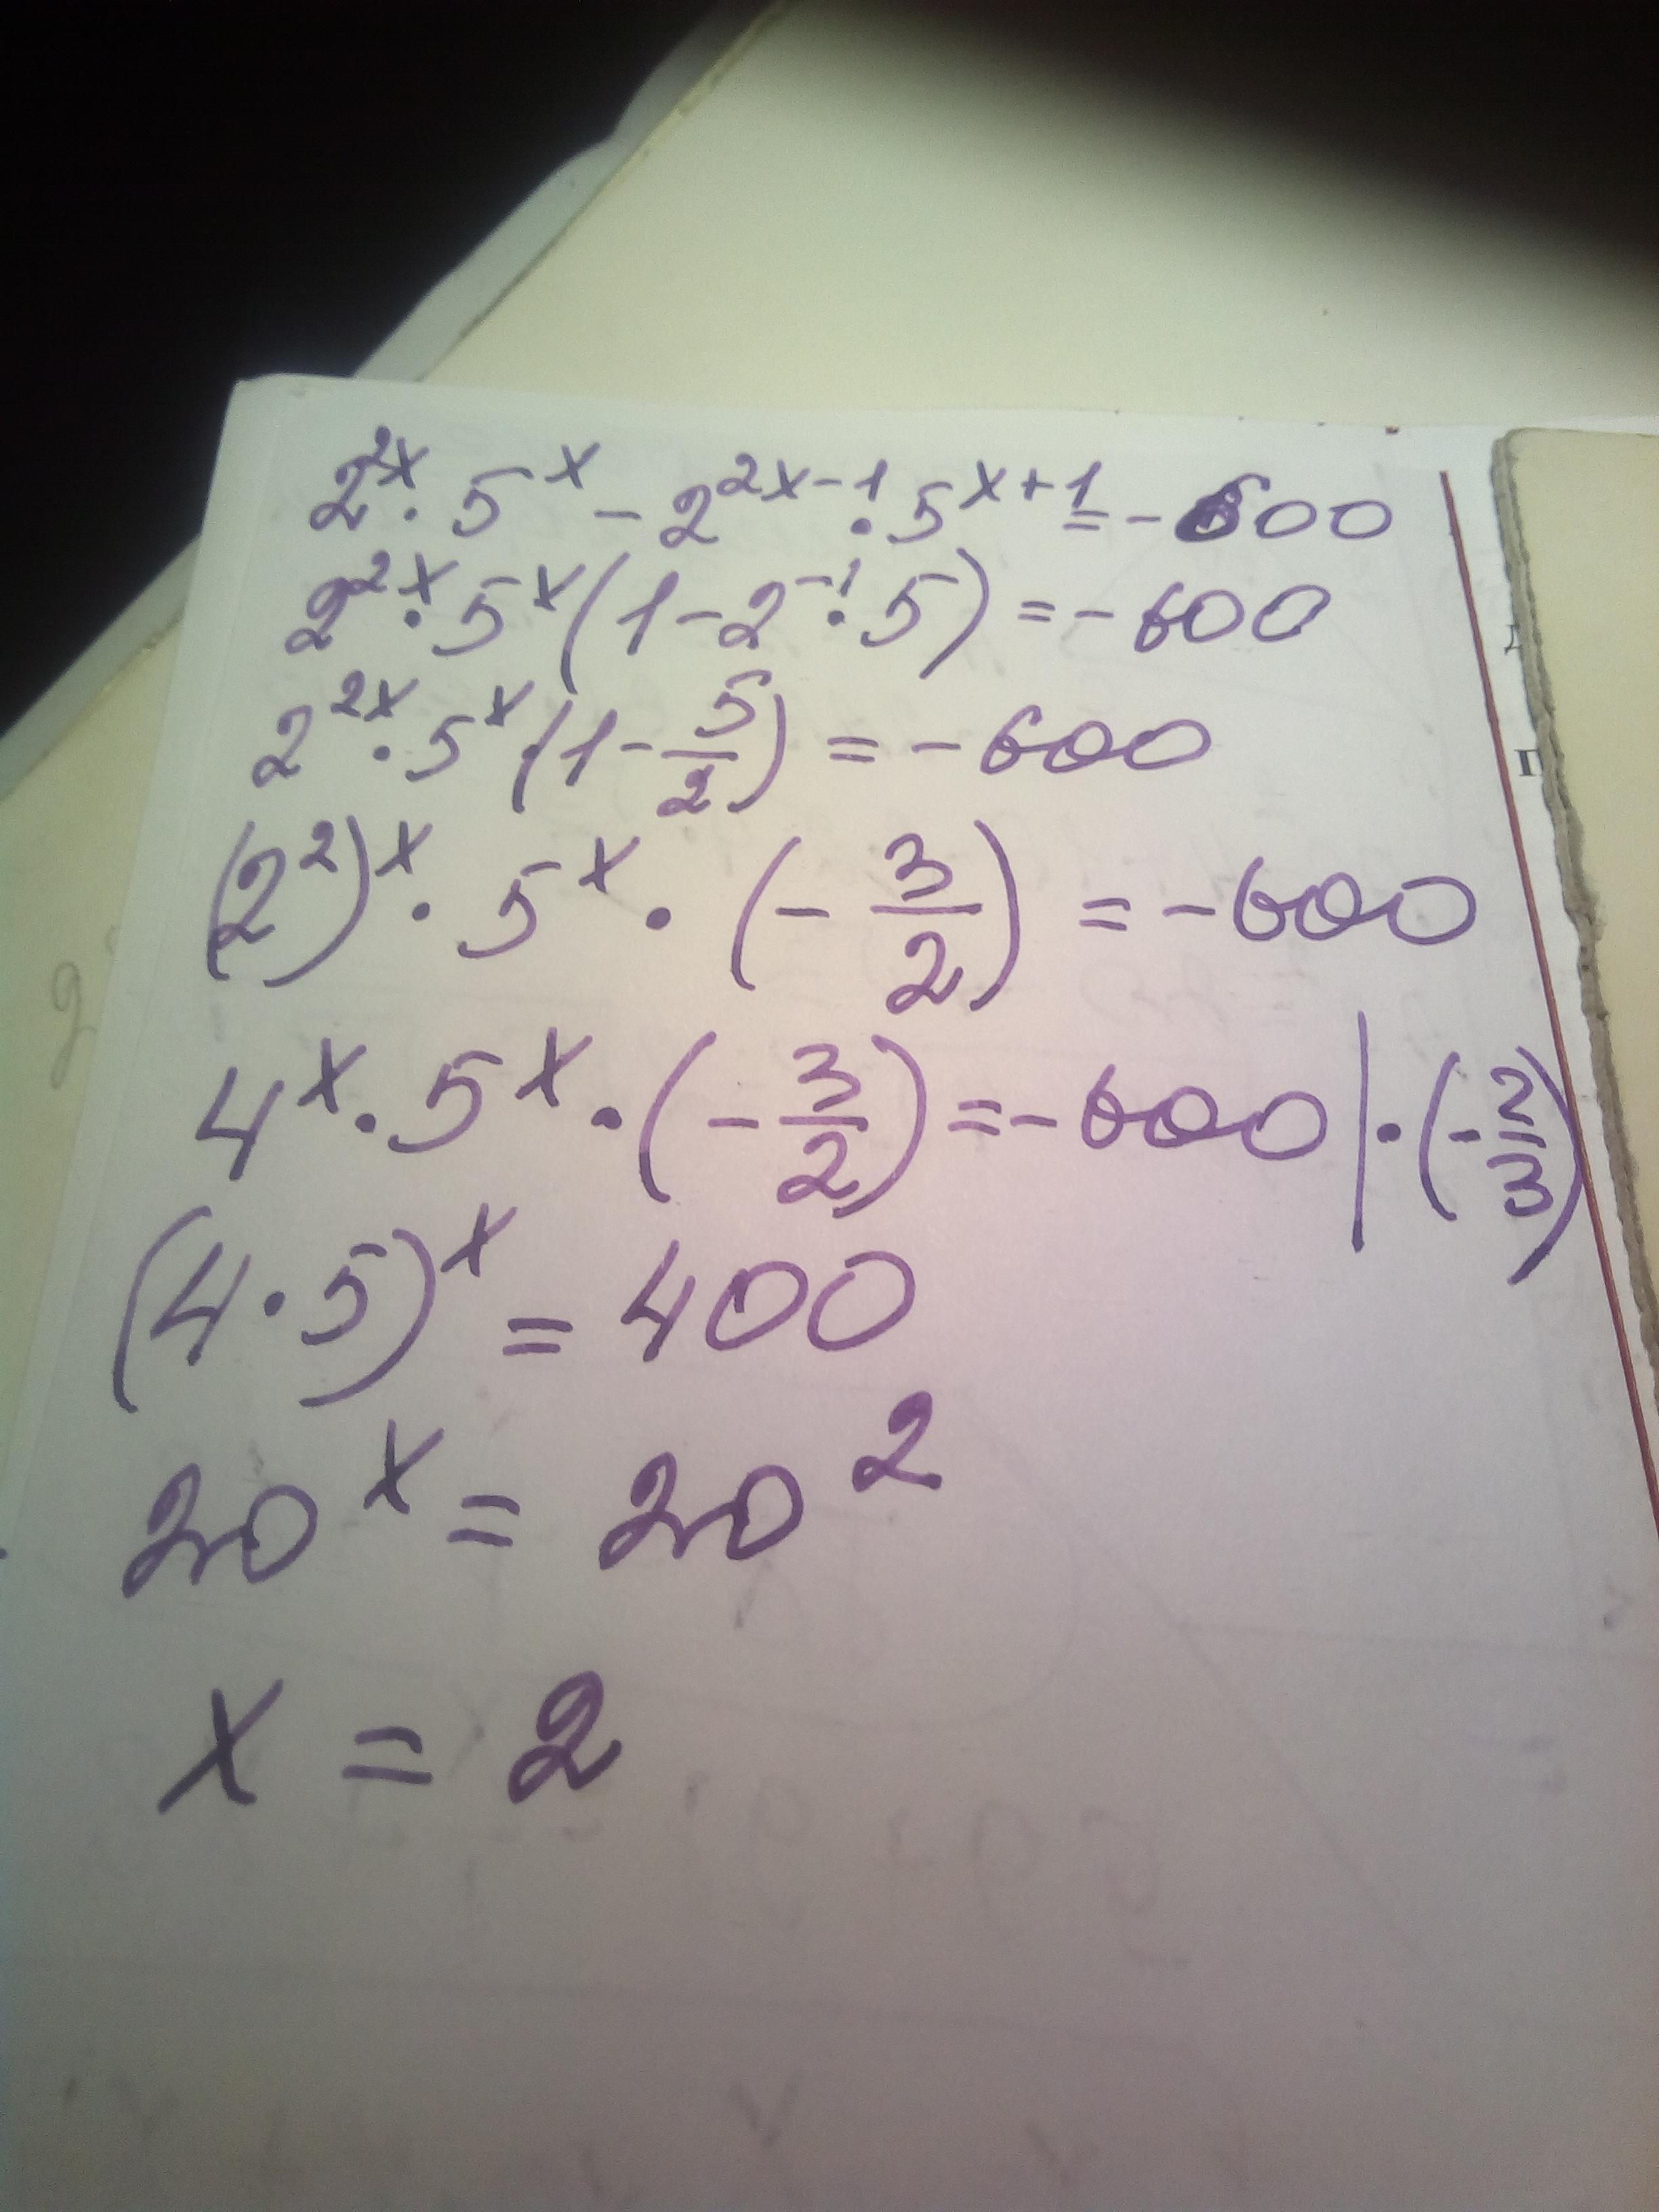 2^{2x} · 5^x - 2^{2x-1} · 5^{x+1} = -600
2^{2x} · 5^x (1 - 2^{-1} · 5) = -600
2^{2x} · 5^x · (1 - \frac{5}{2}) = -600
(2^2)^x · 5^x · (- \frac{3}{2}) = -600
4^x · 5^x · (- \frac{3}{2}) = -600 | · (- \frac{2}{3})
(4 · 5)^x = 400
20^x = 20^2
x = 2